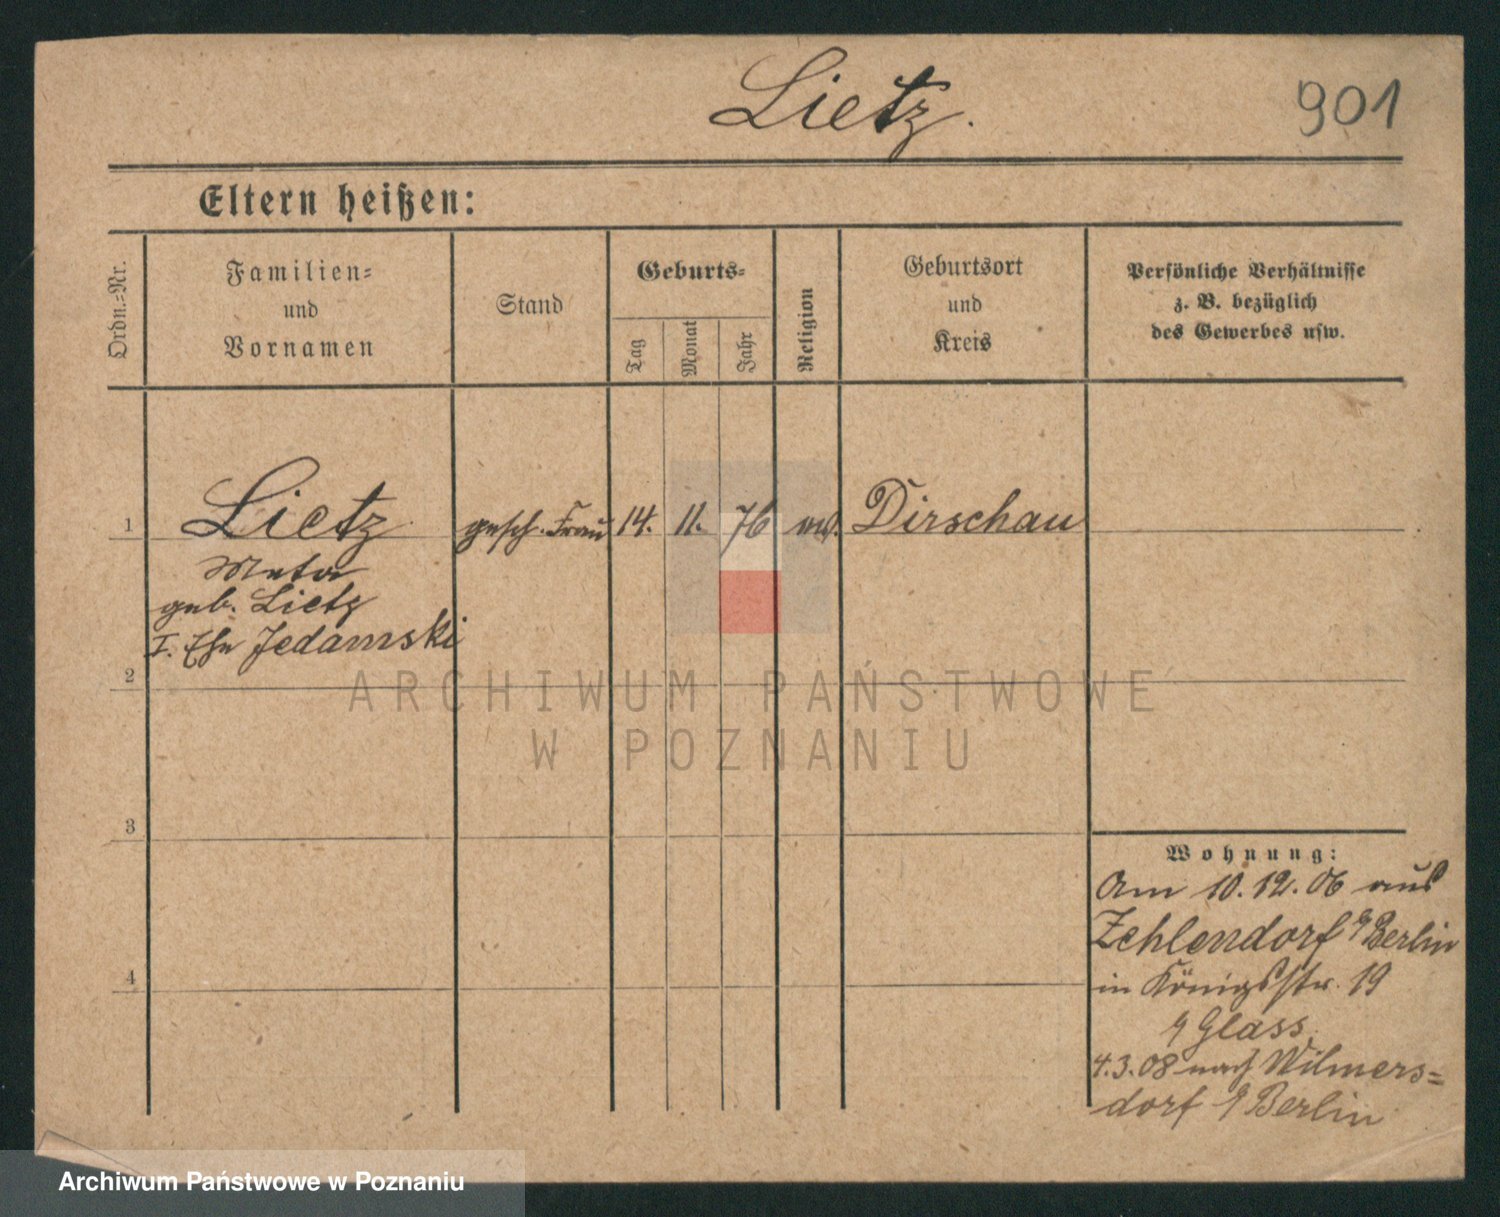 Lietz.
901
Eltern heißen:
Ordn.=Nr.
Familien=
und
Vornamen
Stand
Geburts=
Tag
Monat
Jahr
Religion
Geburtsort
und
Kreis
Persönliche Verhältnisse
z. B. bezüglich
des Gewerbes usw.
1
Lietz
gesch. Frau
14.
11.
76
ev.
Dirschau
Meta
geb. Lietz
I. Ehe Jedamski
2
ARCHIWUM PAŃSTWOWE
W POZNANIU
3
Wohnung:
Am 10.12.06 aus
Zehlendorf b/Berlin
in Königsstr. 19
b/ Glass.
4
4.3.08 nach Wilmers=
dorf b/Berlin
Archiwum Państwowe w Poznaniu